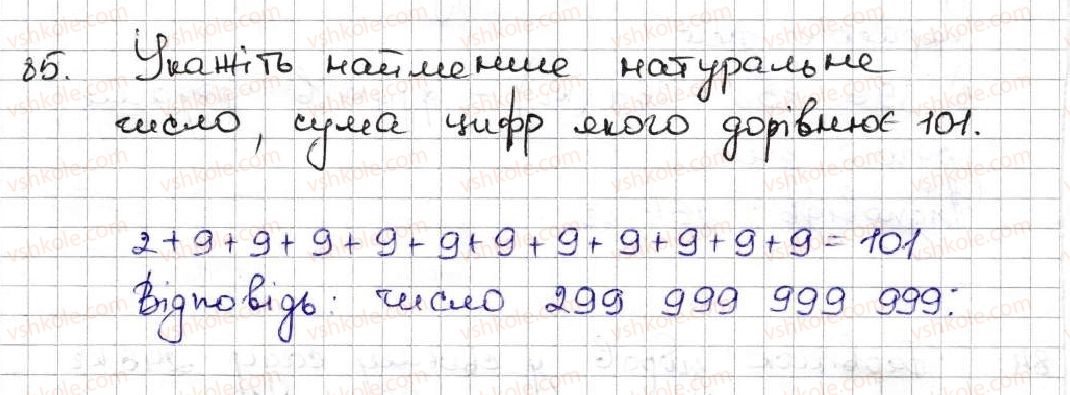 85. Укажіть найменше натуральне
число, сума цифр якого дорівнює 101.
2 + 9 + 9 + 9 + 9 + 9 + 9 + 9 + 9 + 9 + 9 + 9 = 101
Відповідь: число 299 999 999 999.